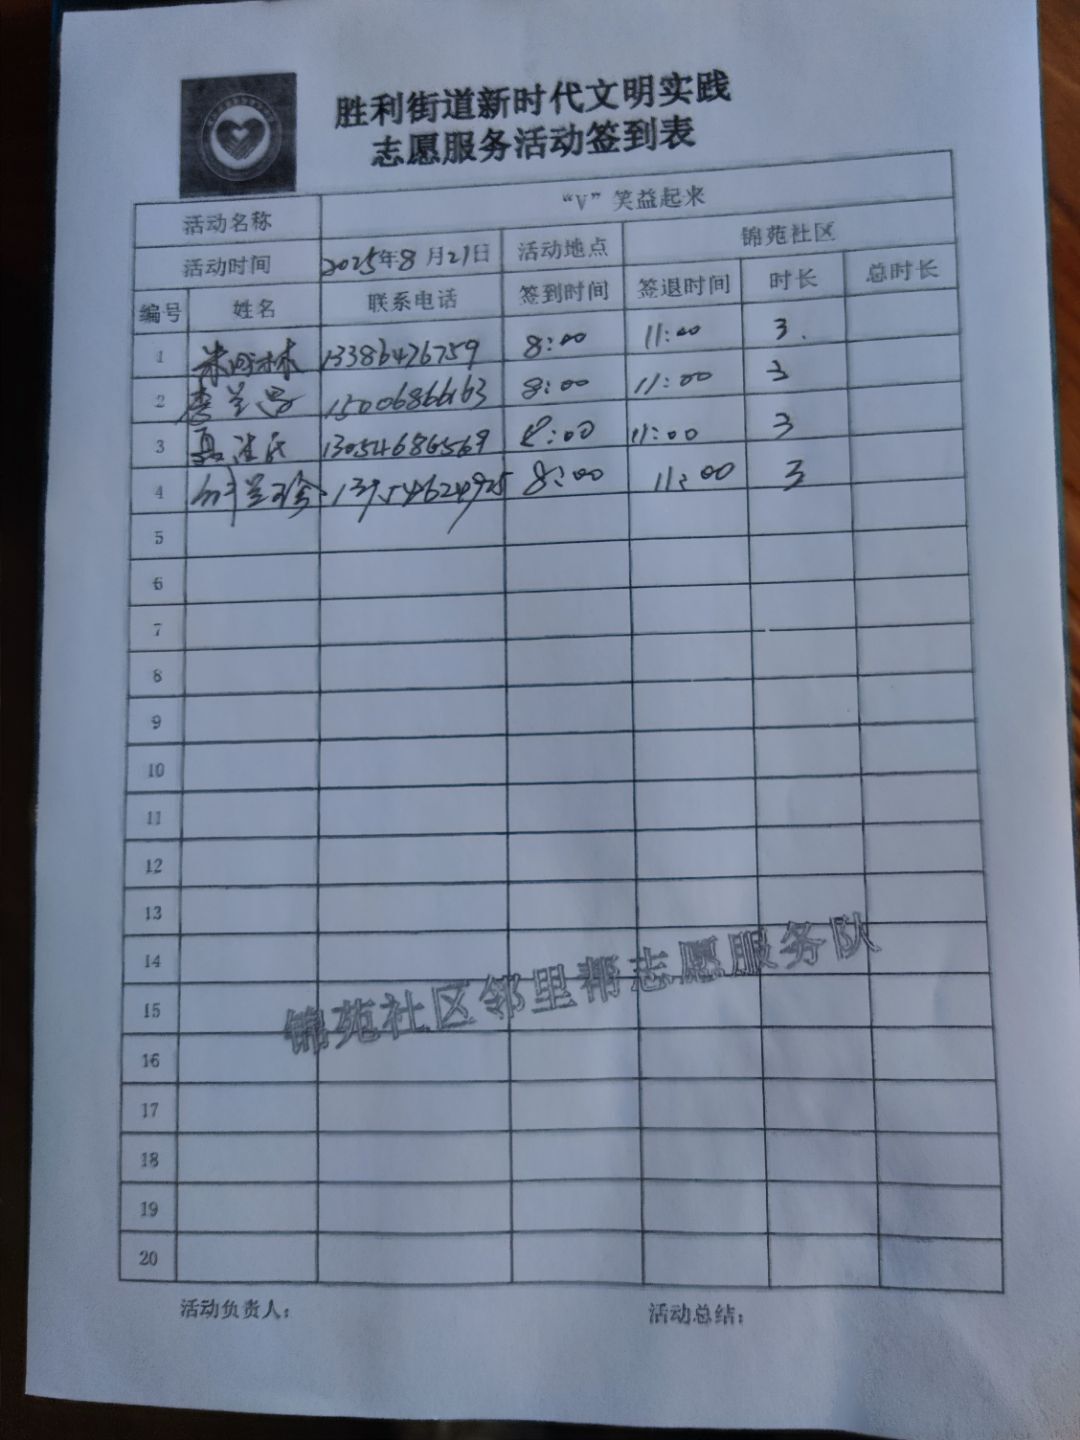 胜利街道新时代文明实践
志愿服务活动签到表
活动名称 “V”笑益起来
活动时间 2025年8月21日 活动地点 锦苑社区
编号 姓名 联系电话 签到时间 签退时间 时长 总时长
1 13386476759 8:00 11:00 3
2 15006866163 8:00 11:00 3
3 13054686569 8:00 11:00 3
4 13954624925 8:00 11:00 3
5
6
7
8
9
10
11
12
13
14
15
16
17
18
19
20
锦苑社区邻里帮志愿服务队
活动负责人： 活动总结：